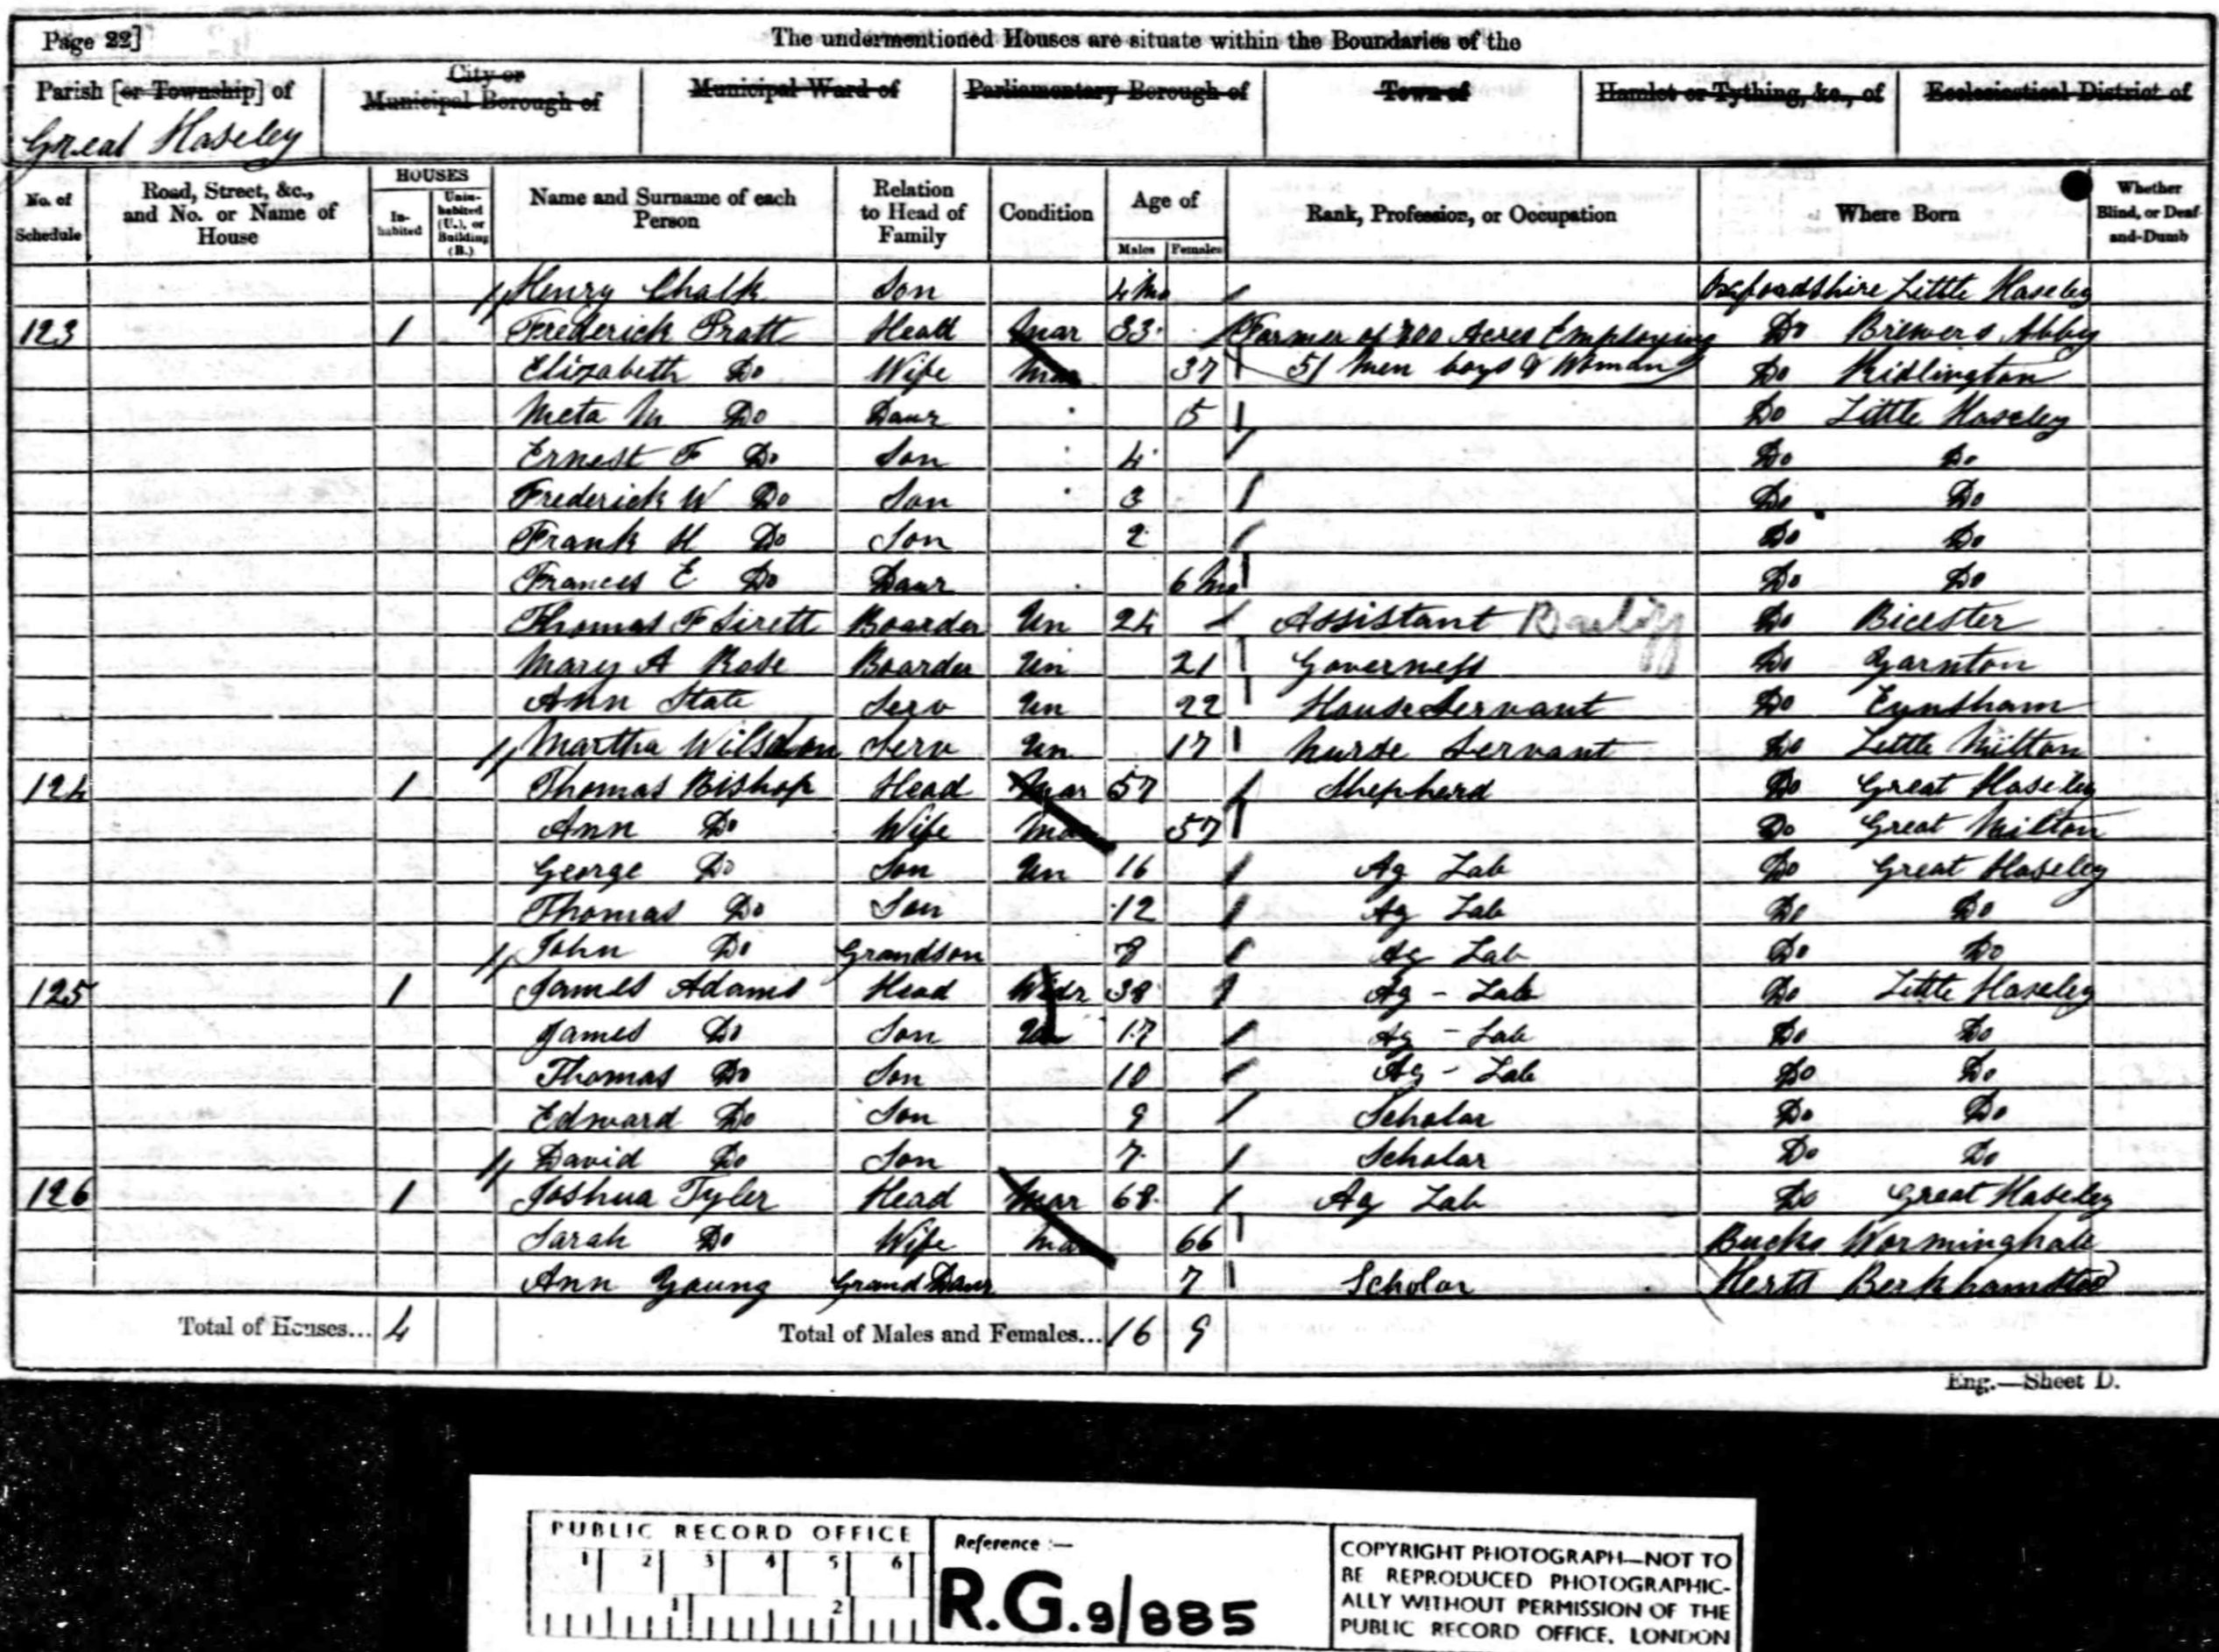 Page 22]
The undermentioned Houses are situate within the Boundaries of the
Parish [or Township] of
Great Haseley
City or
Municipal Borough of
Municipal Ward of
Parliamentary Borough of
Town of
Hamlet or Tything, &c., of
Ecclesiastical District of
No. of Schedule
Road, Street, &c., and No. or Name of House
HOUSES
In-habited
Unin-habited (U.), or Building (B.)
Name and Surname of each Person
Relation to Head of Family
Condition
Age of
Males
Females
Rank, Profession, or Occupation
Where Born
Whether Blind, or Deaf-and-Dumb
Henry Chalk Son 4 Mo Oxfordshire Little Haseley
123 1 Frederick Pratt Head Mar 33 Farmer of 700 Acres Employing Do Briewers Abby
Elizabeth Do Wife Mar 37 51 Men boys & Woman Do Kidlington
Meta M Do Daur 5 Do Little Haseley
Ernest F Do Son 4 Do Do
Frederick W Do Son 3 Do Do
Frank H Do Son 2 Do Do
Frances E Do Daur 6 Mo Do Do
Thomas F Sirett Boarder Un 24 Assistant Bailiff Do Bicester
Mary A Rose Boarder Un 21 Governess Do Yarnton
Ann State Serv Un 22 House Servant Do Eynsham
Martha Wilsdon Serv Un 17 Nurse Servant Do Little Milton
124 1 Thomas Bishop Head Mar 57 Shepherd Do Great Haseley
Ann Do Wife Mar 57 Do Great Milton
George Do Son Un 16 Ag Lab Do Great Haseley
Thomas Do Son 12 Ag Lab Do Do
John Do Grandson 8 Ag Lab Do Do
125 1 James Adams Head Widr 38 Ag - Lab Do Little Haseley
James Do Son Un 17 Ag - Lab Do Do
Thomas Do Son 10 Ag - Lab Do Do
Edward Do Son 9 Scholar Do Do
David Do Son 7 Scholar Do Do
126 1 Joshua Tyler Head Mar 68 Ag Lab Do Great Haseley
Sarah Do Wife Mar 66 Bucks Worminghall
Ann Young Grand Daur 7 Scholar Herts Berkhamsted
Total of Houses... 4
Total of Males and Females... 16 9
Eng.—Sheet D.
PUBLIC RECORD OFFICE
1 2 3 4 5 6
1 2
Reference :—
R.G.9/885
COPYRIGHT PHOTOGRAPH—NOT TO
BE REPRODUCED PHOTOGRAPHIC-
ALLY WITHOUT PERMISSION OF THE
PUBLIC RECORD OFFICE, LONDON